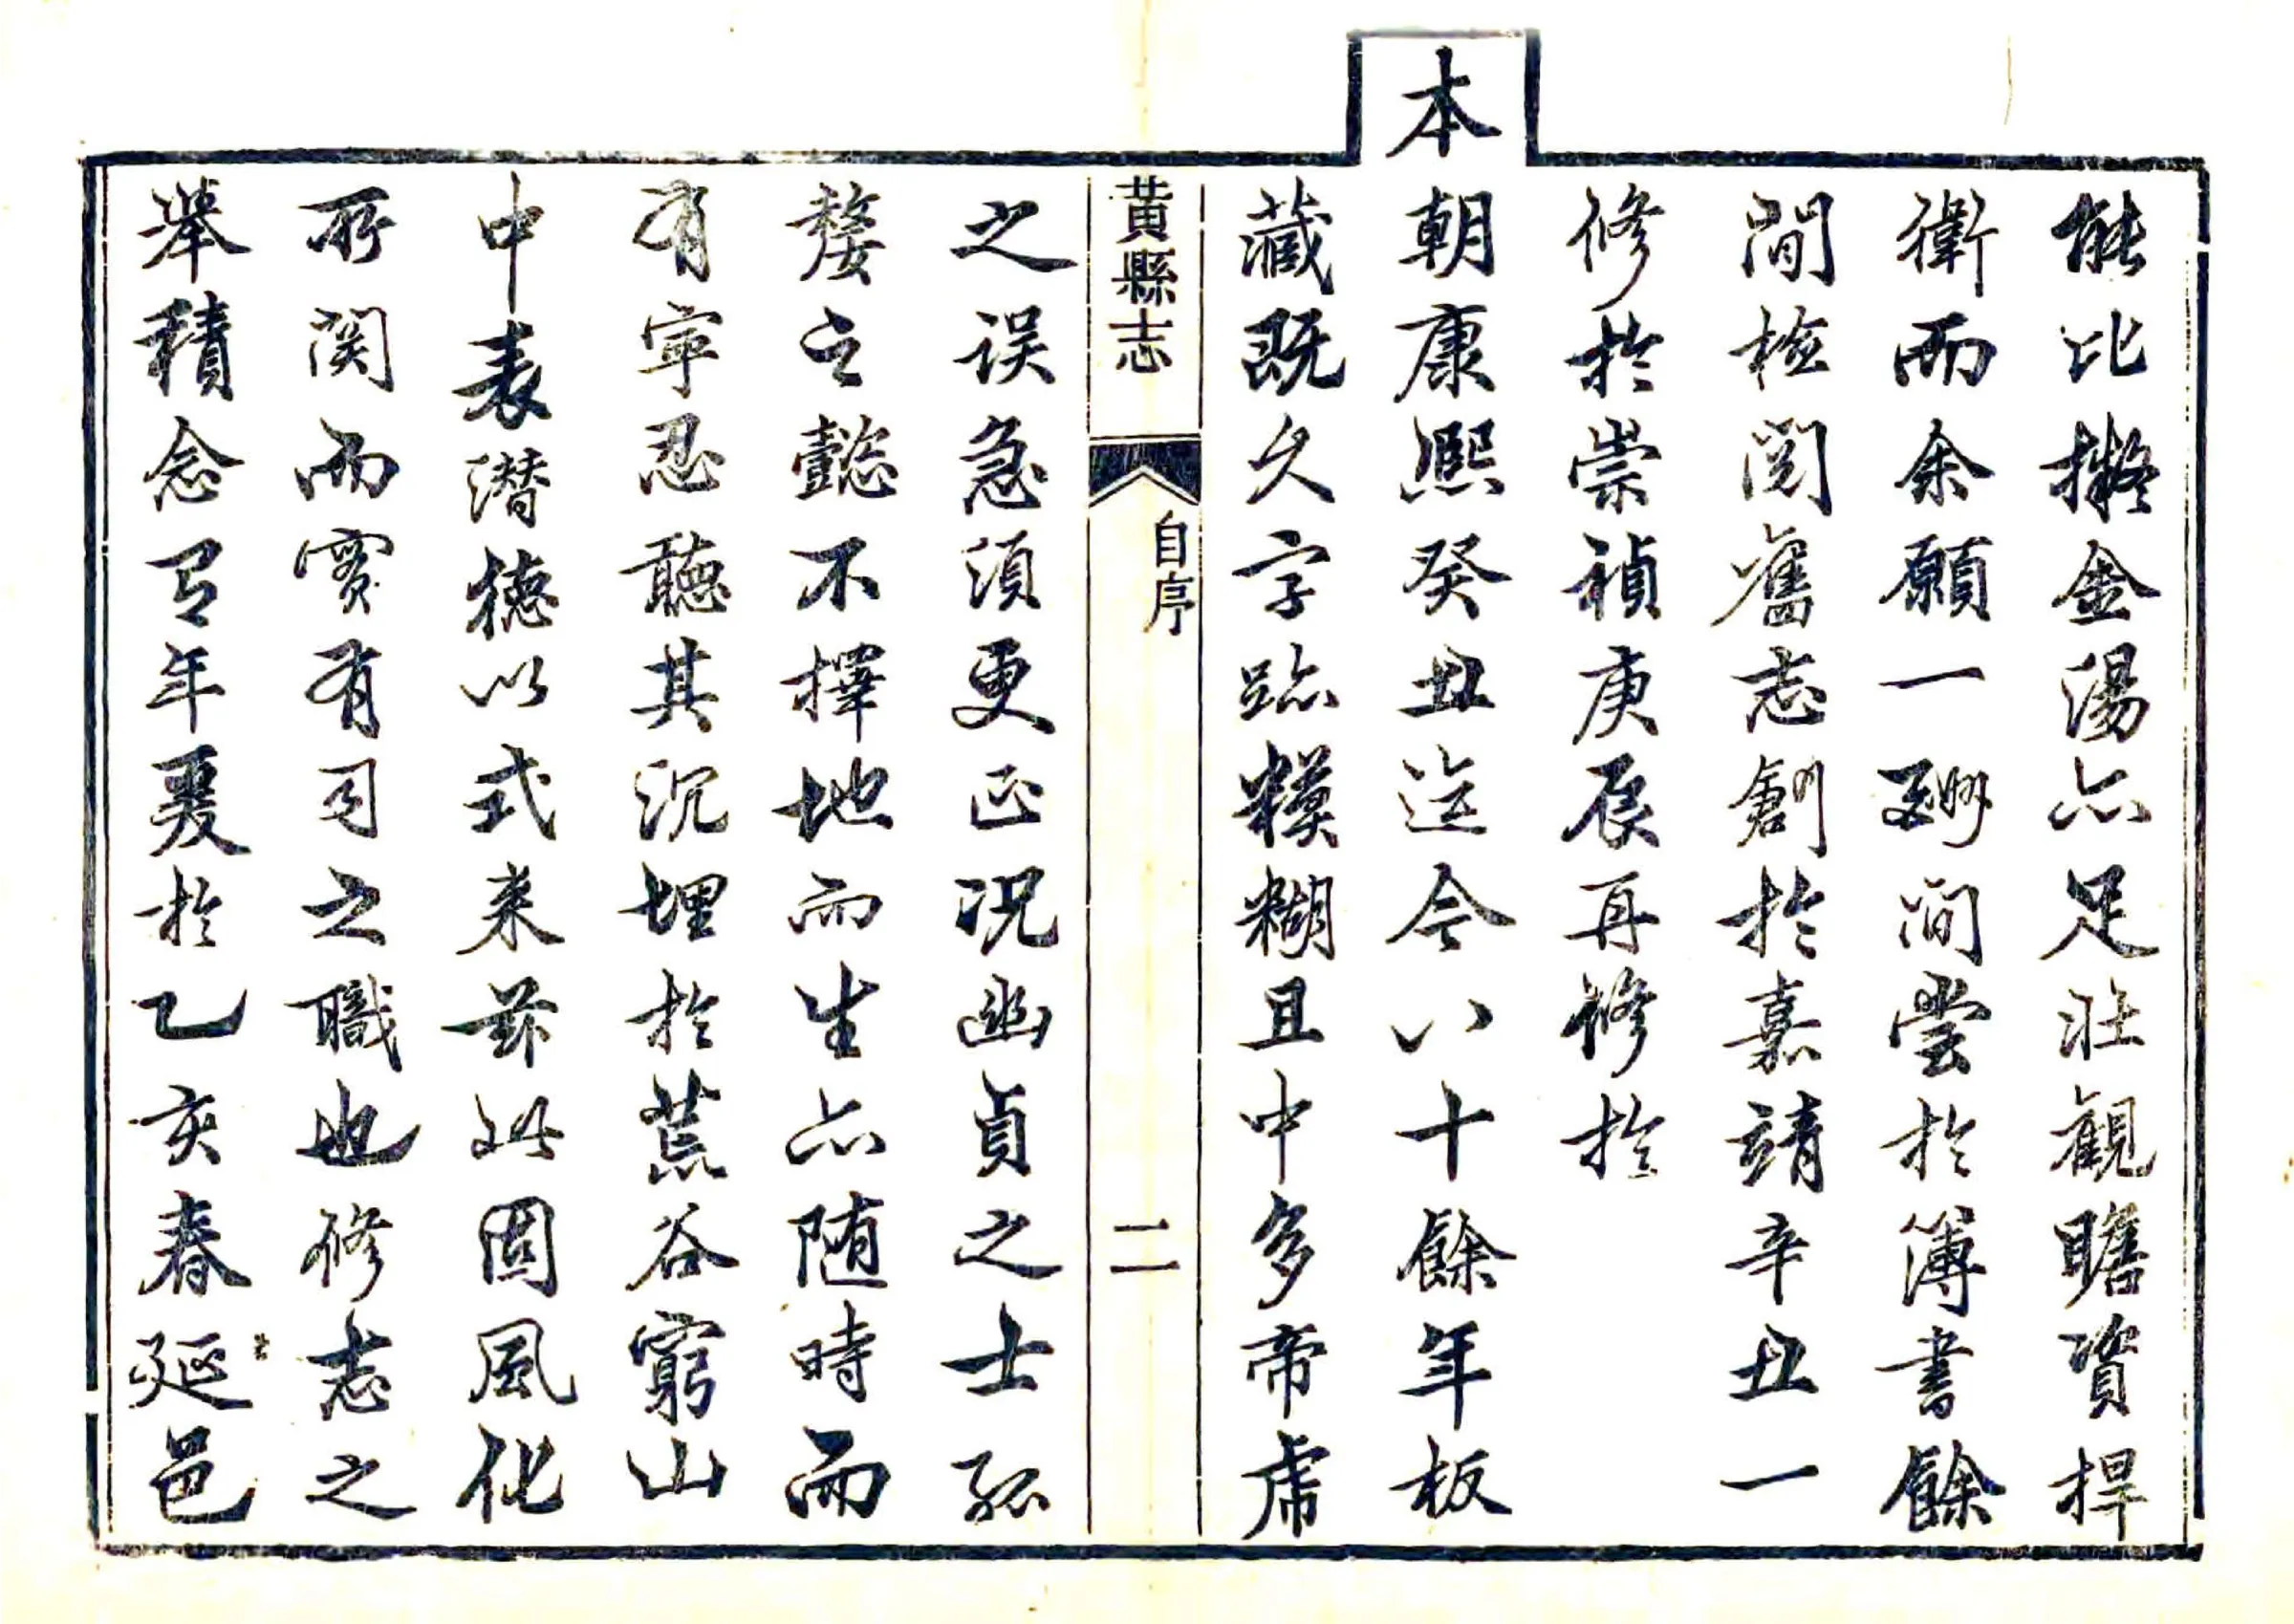 能比擬金湯亦足壯觀瞻資捍
衛而余願一酬間嘗於簿書餘
閒檢閱舊志創於嘉靖辛丑一
修於崇禎庚辰再修於
本朝康熙癸丑迄今八十餘年板
藏既久字跡糢糊且中多帝虎
黃縣志
自序
二
之误急須更正况幽貞之士孤
嫠之懿不擇地而生亦随時而
有寧忍聽其沉埋於荒谷窮山
中表潜德以式来茲此固風化
所関而實有司之職也修志之
舉積念有年夏於乙亥春延邑